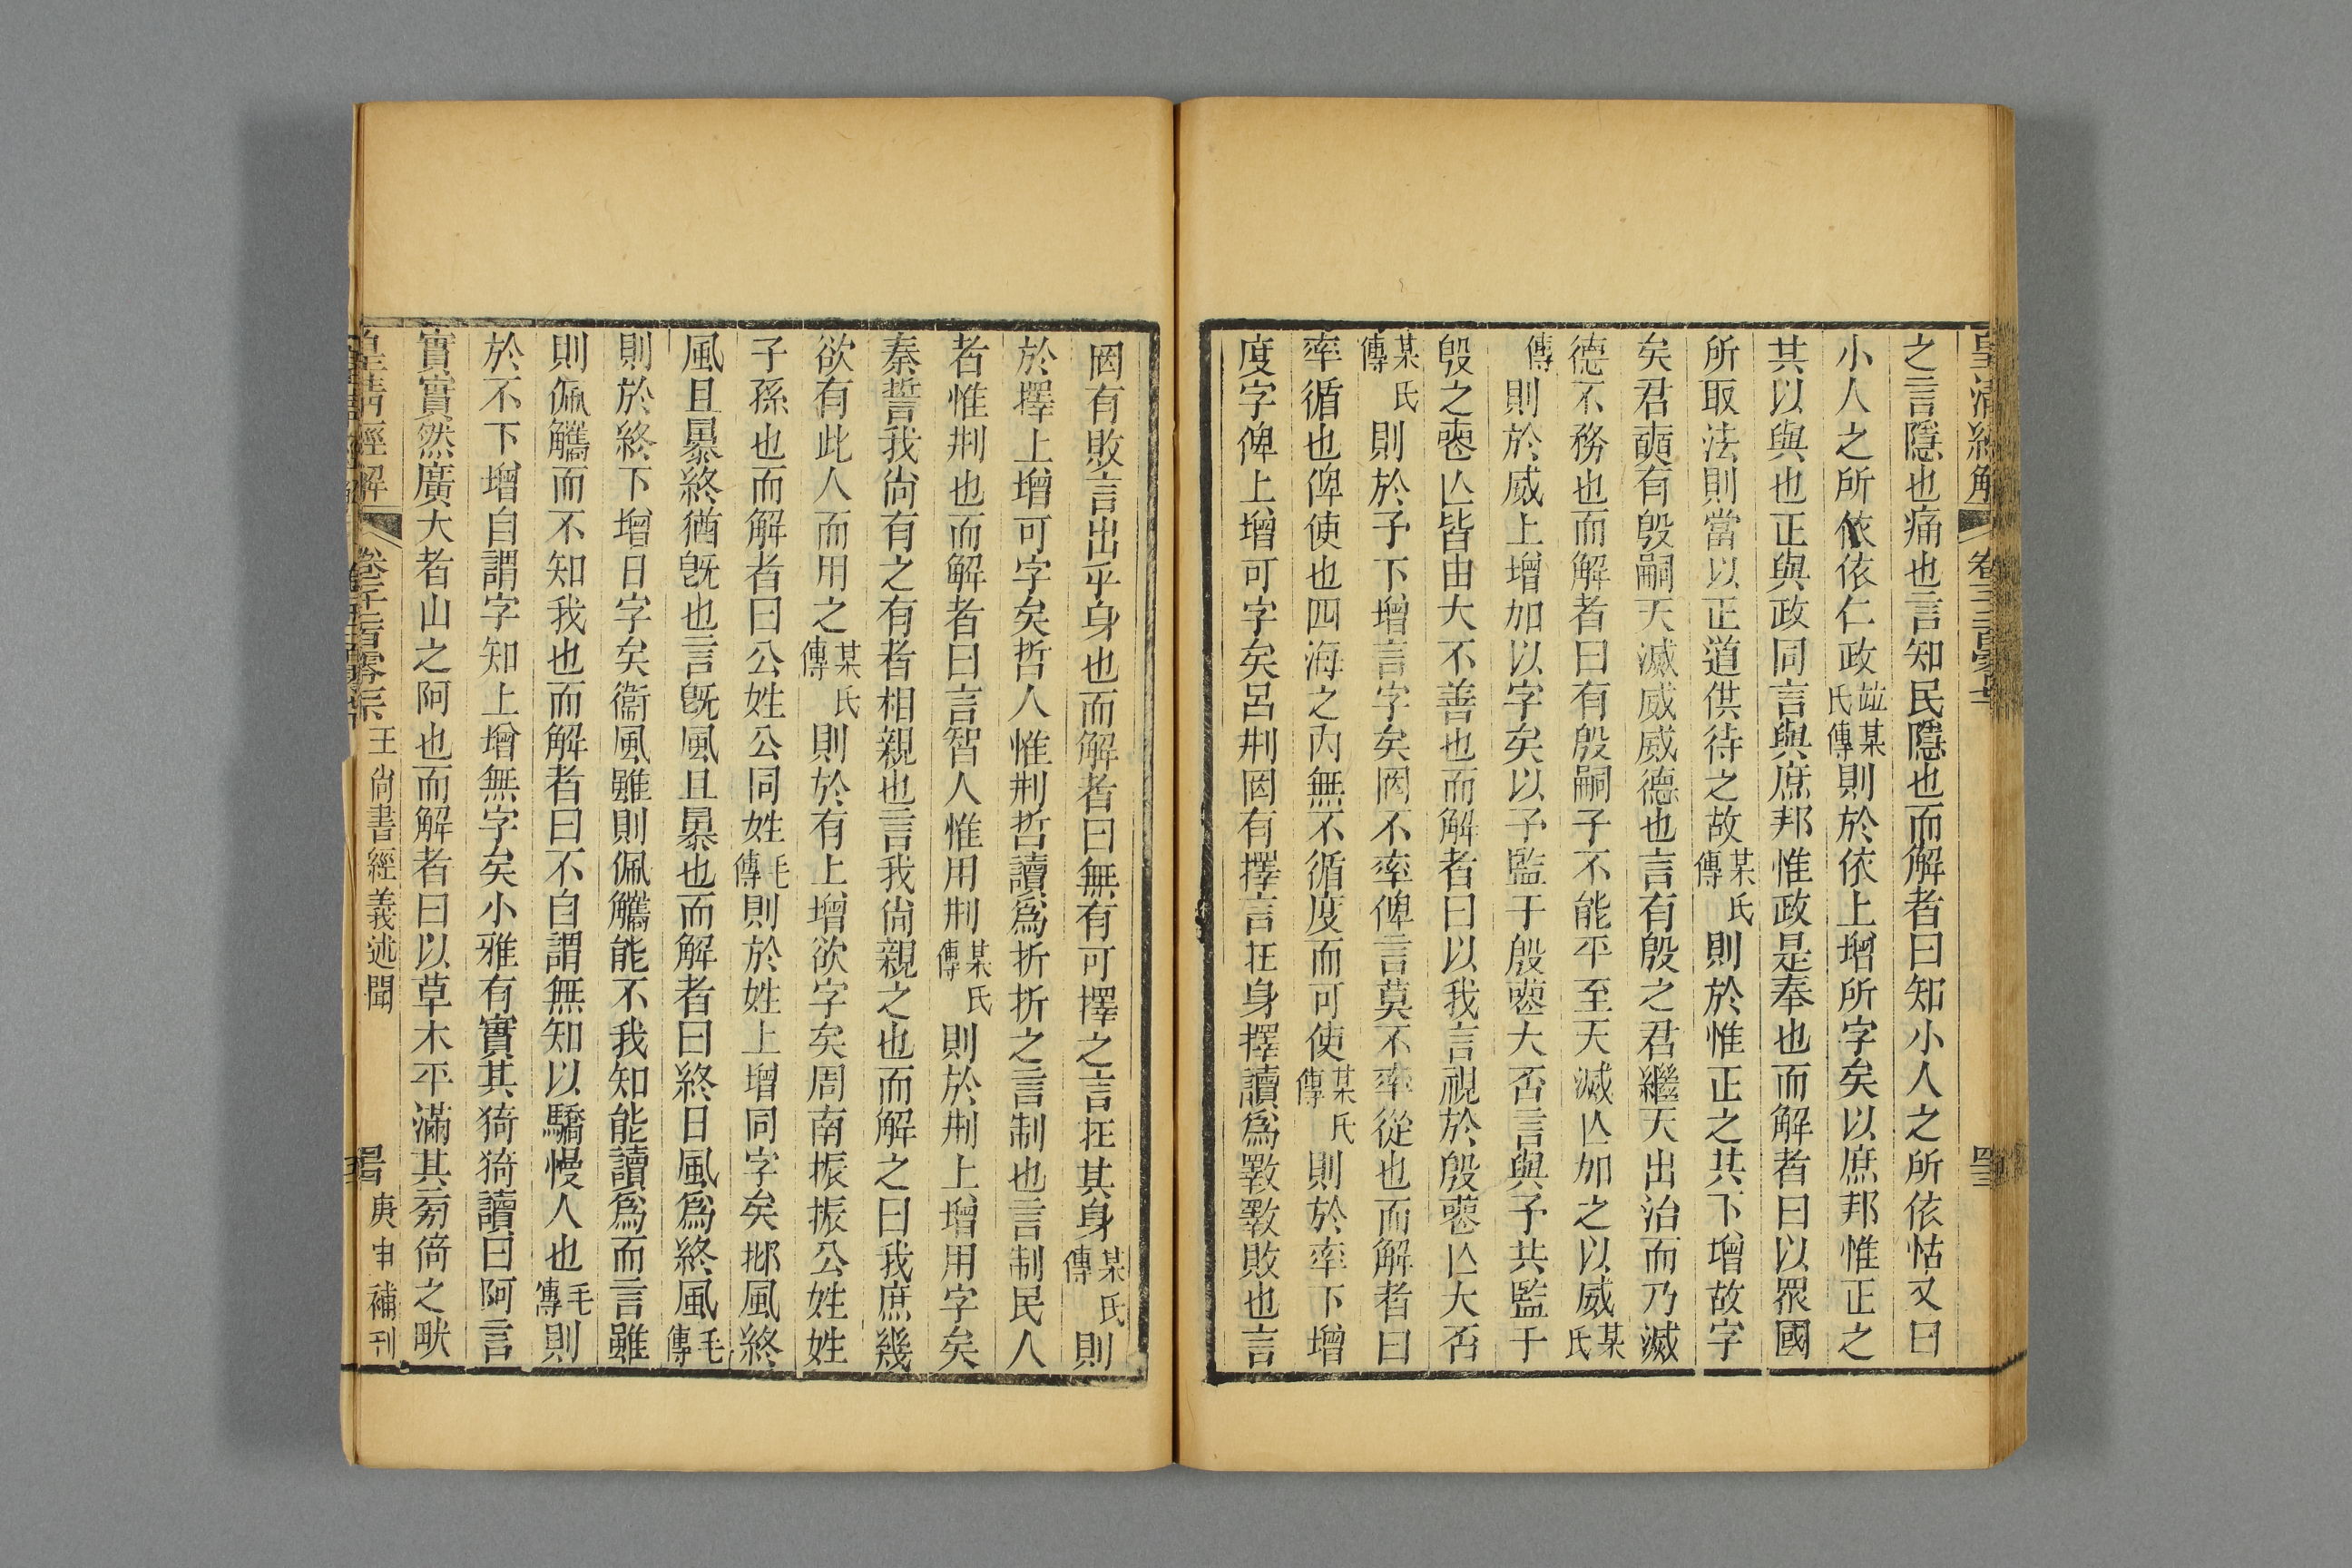 皇清經解
之言隱也痛也言知民隱也而解者曰知小人之所依怙又曰
小人之所依依仁政竝某氏傳則於依上增所字矣以庶邦惟正之
共以與也正與政同言與庶邦惟政是奉也而解者曰以眾國
所取法則當以正道供待之故某氏傳則於惟正之共下增故字
矣君奭有殷嗣天滅威威德也言有殷之君繼天出治而乃滅
德不務也而解者曰有殷嗣子不能平至天滅亾加之以威某氏
傳則於威上增加以字矣以予監于殷䘮大否言與予共監于
殷之䘮亾皆由大不善也而解者曰以我言視於殷䘮亾大否
某氏傳則於予下增言字矣罔不率俾言莫不率從也而解者曰
率循也俾使也四海之內無不循度而可使某氏傳則於率下增
度字俾上增可字矣呂刑罔有擇言在身擇讀爲斁斁敗也言
罔有敗言出乎身也而解者曰無有可擇之言在其身某氏傳則
於擇上增可字矣哲人惟刑哲讀爲折折之言制也言制民人
者惟刑也而解者曰言智人惟用刑某氏傳則於刑上增用字矣
秦誓我尙有之有者相親也言我尙親之也而解之曰我庶幾
欲有此人而用之某氏傳則於有上增欲字矣周南振振公姓姓
子孫也而解者曰公姓公同姓毛傳則於姓上增同字矣邶風終
風且暴終猶旣也言旣風且暴也而解者曰終日風爲終風毛傳
則於終下增日字矣衞風雖則佩觿能不我知能讀爲而言雖
則佩觿而不知我也而解者曰不自謂無知以驕慢人也毛傳則
於不下增自謂字知上增無字矣小雅有實其猗猗讀曰阿言
實實然廣大者山之阿也而解者曰以草木平滿其㫄倚之畎
皇清經解
王尙書經義述聞
庚申補刊